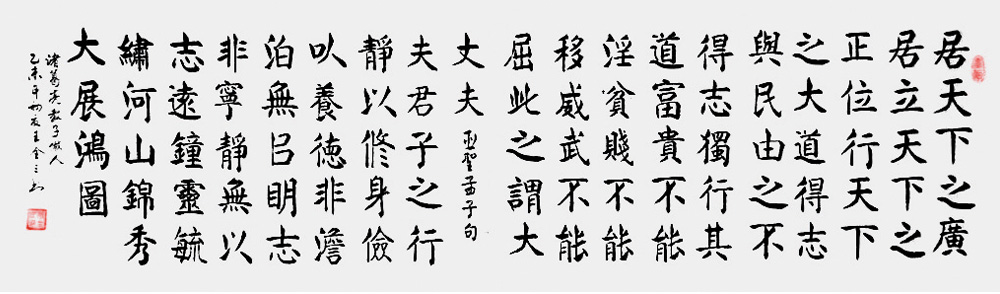 居天下之廣
居立天下之
正位行天下
之大道得志
與民由之不
得志獨行其
道富貴不能
淫貧賤不能
移威武不能
屈此之謂大
丈夫亞聖孟子句
夫君子之行
靜以修身儉
以養德非澹
泊無以明志
非寧靜無以
志遠鐘靈毓
繡河山錦秀
大展鴻圖
諸葛亮教子做人
乙未年初夏王金三書